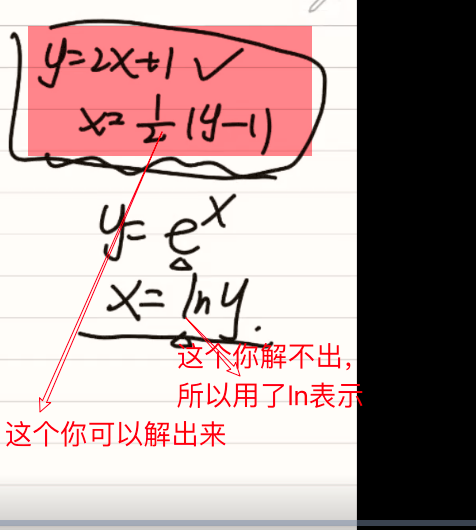 y=2x+1 ✓
x=1/2(y-1)
y=e^x
x=lny.
这个你解不出，
所以用了ln表示
这个你可以解出来